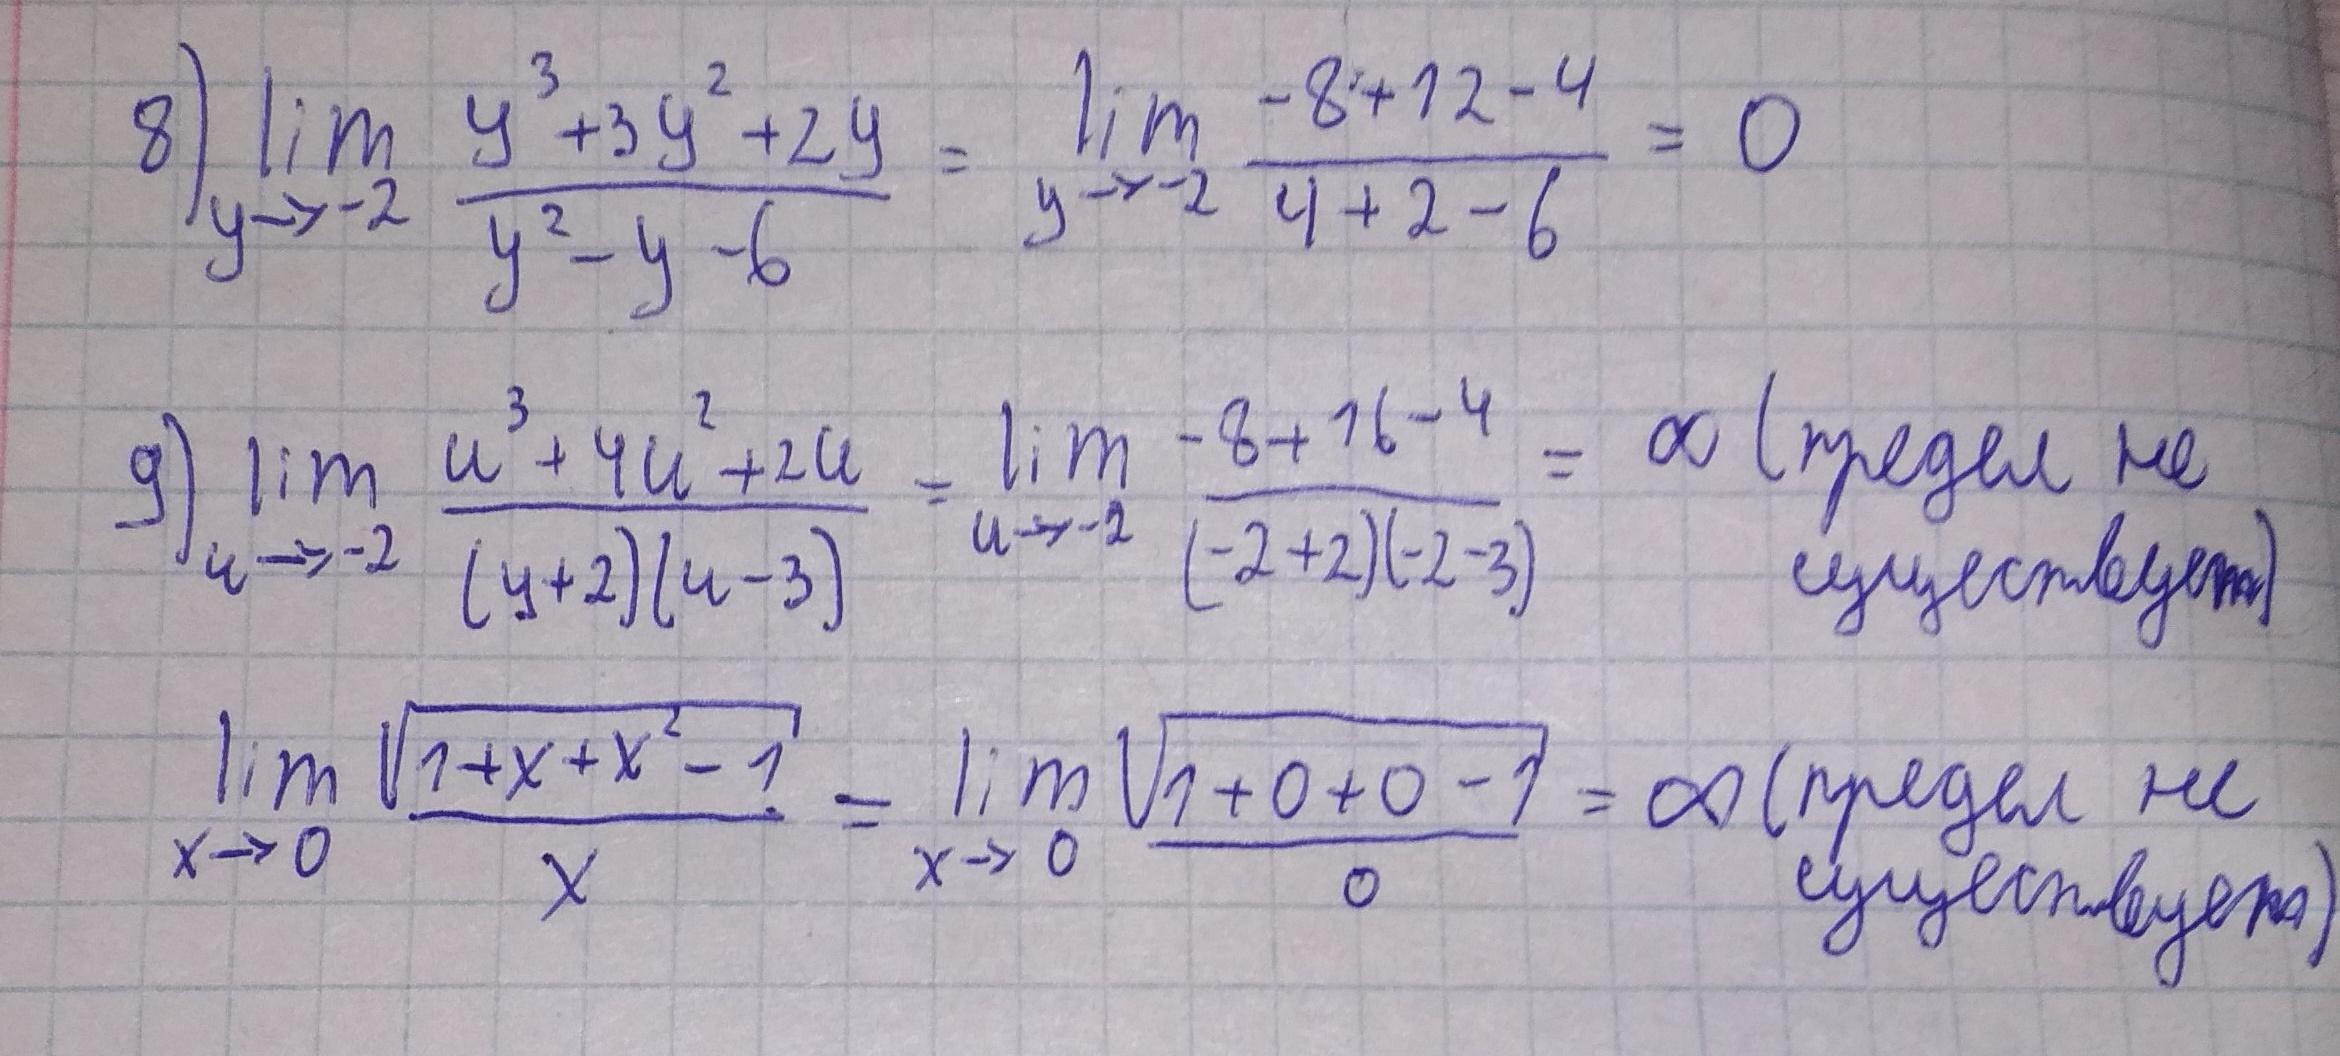 8) lim y→-2 (y³+3y²+2y)/(y²-y-6) = lim y→-2 (-8+12-4)/(4+2-6) = 0
9) lim u→-2 (u³+4u²+2u)/((y+2)(u-3)) = lim u→-2 (-8+16-4)/((-2+2)(-2-3)) = ∞ (предел не
существует)
lim x→0 √(1+x+x²-1)/x = lim x→0 √(1+0+0-1)/0 = ∞ (предел не
существует)